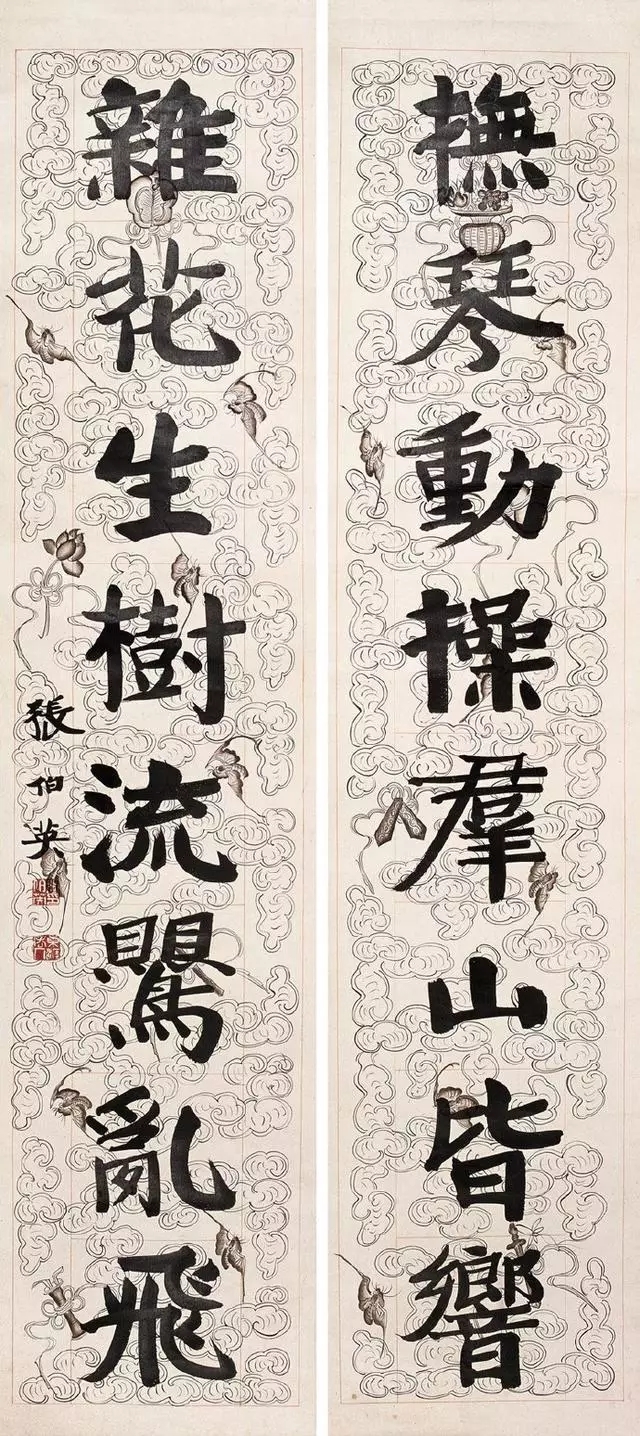 撫琴動操羣山皆響
雜花生樹流鸎亂飛
張伯英